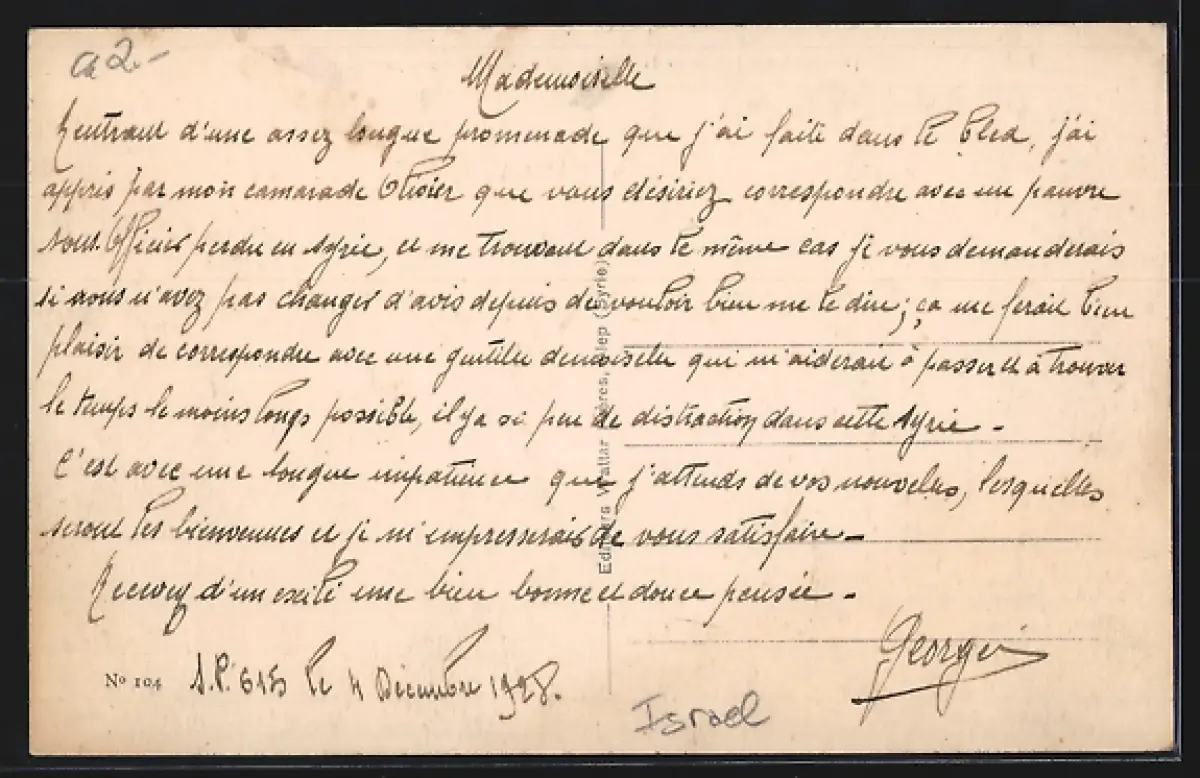 ca 2.-
Mademoiselle
Rentrant d'une assez longue promenade que j'ai faite dans le bled, j'ai
appris par mon camarade Olivier que vous désiriez correspondre avec un pauvre
sous-Officier perdu en Syrie, et me trouvant dans le même cas je vous demanderais
si vous n'avez pas changer d'avis depuis de vouloir bien me le dire; ça me ferait bien
plaisir de correspondre avec une gentille demoiselle qui m'aiderait à passer et à trouver
le temps le moins longs possible, il y a si peu de distraction dans cette Syrie -
C'est avec une longue impatience que j'attends de vos nouvelles, lesquelles
seront les bienvenues et je m'empresserais de vous satisfaire -
Recevez d'un exilé une bien bonne et douce pensée -
Georges
Nº 104
S.P. 615 le 4 Décembre 1928.
Israel
Editeurs Wattar Frères, Alep (Syrie)